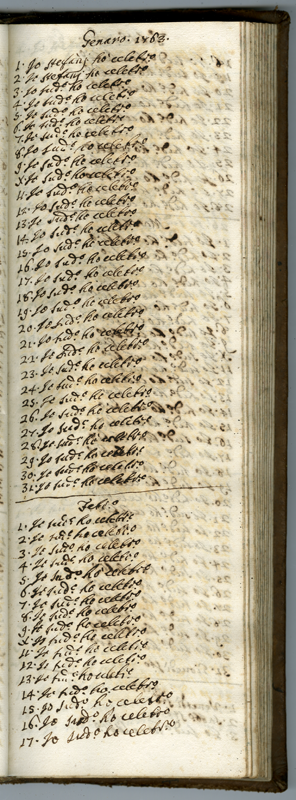 Genaro. 1863.
1. Io Stefanj ho celebro
2. Io Stefanj ho celebro
3. Io sudo ho celebro
4. Io sudo ho celebro
5. Io sudo ho celebro
6. Io sudo ho celebro
7. Io sudo ho celebro
8. Io sudo ho celebro
9. Io sudo ho celebro
X. Io sudo ho celebro
11. Io sudo ho celebro
12. Io sudo ho celebro
13. Io sudo ho celebro
14. Io sudo ho celebro
15. Io sudo ho celebro
16. Io sudo ho celebro
17. Io sudo ho celebro
18. Io sudo ho celebro
19. Io sudo ho celebro
20. Io sudo ho celebro
21. Io sudo ho celebro
22. Io sudo ho celebro
23. Io sudo ho celebro
24. Io sudo ho celebro
25. Io sudo ho celebro
26. Io sudo ho celebro
27. Io sudo ho celebro
28. Io sudo ho celebro
29. Io sudo ho celebro
30. Io sudo ho celebro
31. Io sudo ho celebro
Febro
1. Io sudo ho celebro
2. Io sudo ho celebro
3. Io sudo ho celebro
4. Io sudo ho celebro
5. Io sudo ho celebro
6. Io sudo ho celebro
7. Io sudo ho celebro
8. Io sudo ho celebro
9. Io sudo ho celebro
X. Io sudo ho celebro
11. Io sudo ho celebro
12. Io sudo ho celebro
13. Io sudo ho celebro
14. Io sudo ho celebro
15. Io sudo ho celebro
16. Io sudo ho celebro
17. Io sudo ho celebro